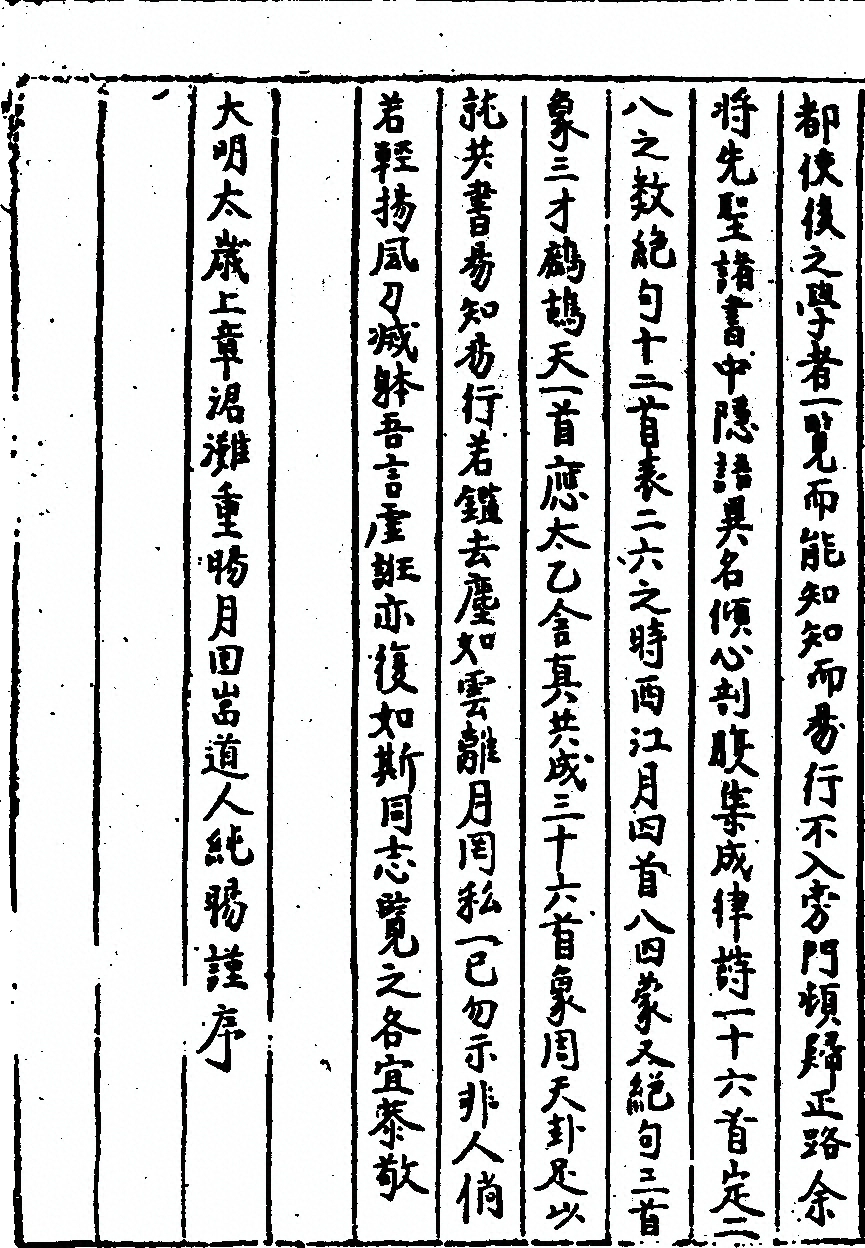 都使後之學者一覽而能知知而易行不入旁門頓歸正路余
將先聖諸書中隱語異名傾心剖腹集成律詩一十六首定二
八之数絕句十二首表二六之時西江月四首八四蒙又絕句三首
象三才鷓鴣天一首應太乙含真共成三十六首象周天卦足以
就共書易知易行若鑑去塵如雲離月罔私一己勿示非人倘
若輕揚風刀減躰吾言虛誑亦復如斯同志覽之各宜恭敬
大明太歲上章涒灘重陽月回岀道人純陽謹序